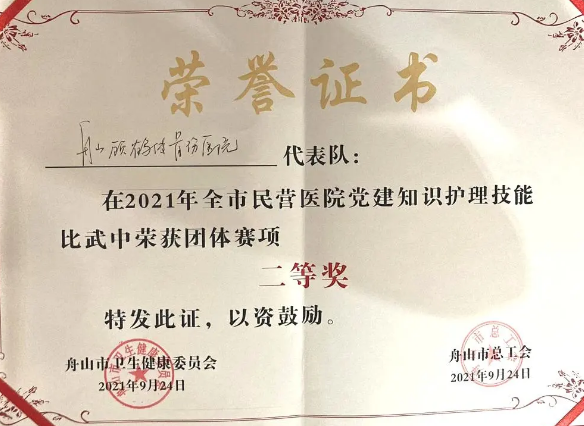 荣誉证书
舟山顾鹤林骨伤医院 代表队:
在2021年全市民营医院党建知识护理技能
比武中荣获团体赛项
二等奖
特发此证,以资鼓励。
舟山市卫生健康委员会
2021年9月24日
舟山市总工会
2021年9月24日